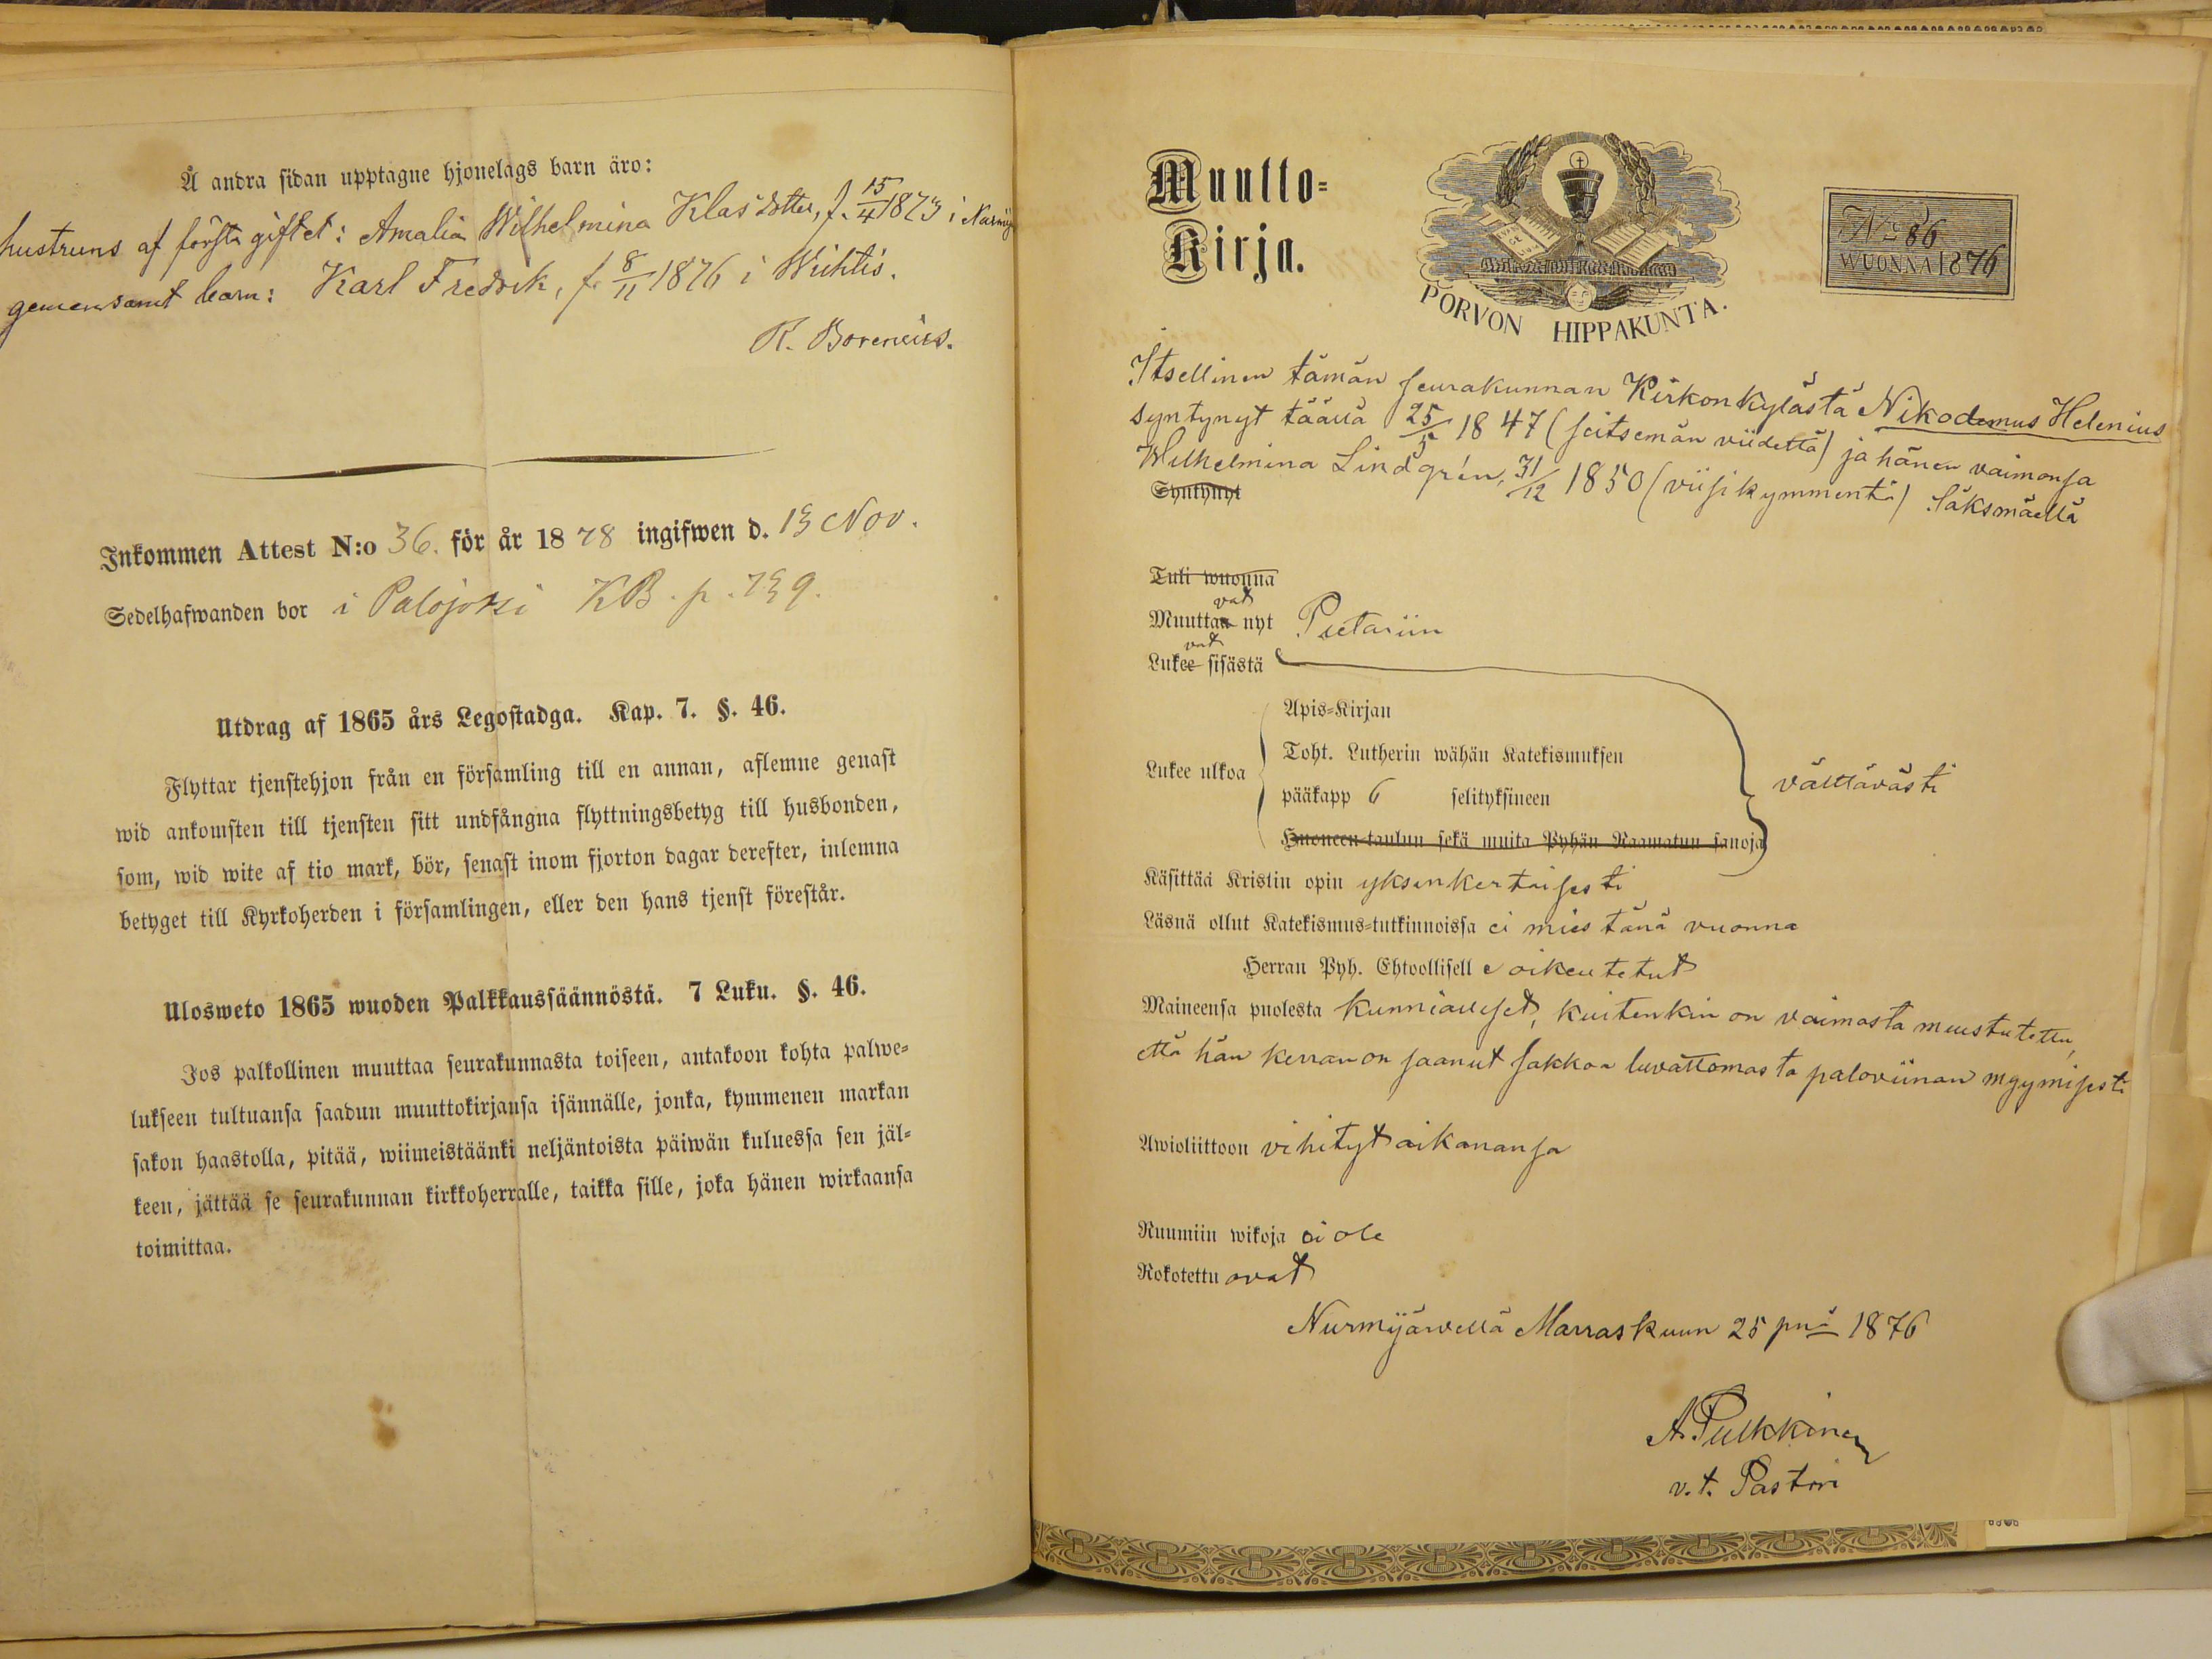 Å andra sidan upptagne hjonelags barn äro:
hustruns af första giftet: Amalia Wilhelmina Klasdotter, f. 15/4 1873 i Nurmij
gemensamt barn: Karl Fredrik, f. 8/11 1876 i Wichtis.
R. Borenius.
Inkommen Attest N:o 36. för år 1878 ingifwen d. 13 Nov.
Sedelhafwanden bor i Palojoki KB. p. 739.
Utdrag af 1865 års Legostadga. Kap. 7. §. 46.
Flyttar tjenstehjon från en församling till en annan, aflemne genast
wid ankomsten till tjensten sitt undfångna flyttningsbetyg till husbonden,
som, wid wite af tio mark, bör, senast inom fjorton dagar derefter, inlemna
betyget till Kyrkoherden i församlingen, eller den hans tjenst förestår.
Ulosweto 1865 wuoden Palkkaussäännöstä. 7 Luku. §. 46.
Jos palkollinen muuttaa seurakunnasta toiseen, antakoon kohta palwe-
lukseen tultuansa saadun muuttokirjansa isännälle, jonka, kymmenen markan
sakon haastolla, pitää, wiimeistäänki neljäntoista päiwän kuluessa sen jäl-
keen, jättää se seurakunnan kirkkoherralle, taikka sille, joka hänen wirkaansa
toimittaa.
Muutto-
Kirja.
PORVON HIPPAKUNTA.
No 86
WUONNA 1876
Itsellinen tämän seurakunnan Kirkonkylästä Nikodemus Helenius
syntynyt täällä 25/5 1847 (seitsemän viidettä) ja hänen vaimonsa
Wilhelmina Lindgrén, 31/12 1850 (viisikymmentä) Sääksmäellä
Syntynyt
Tuli wuonna
vat
Muuttaa nyt Pietariin
vat
Lukee sisästä
Apis-Kirjan
Toht. Lutherin wähän Katekismuksen
Lukee ulkoa
pääkapp 6 selityksineen
välttävästi
Huoneen-taulun sekä muita Pyhän Raamatun sanoja
Käsittää Kristin opin yksinkertaisesti
Läsnä ollut Katekismus-tutkinnoissa ei mies tänä vuonna
Herran Pyh. Ehtoollisell e oikeutetut
Maineensa puolesta kunnialliset, kuitenkin on vaimosta muistutettu,
että hän kerran on saanut sakkoa luvattomasta paloviinan myymisesti
Awioliittoon vihityt aikanansa
Ruumiin wikoja ei ole
Rokotettu ovat
Nurmijärvellä Marraskuun 25 pnä 1876
A. Pulkkinen
v.t. Pastori